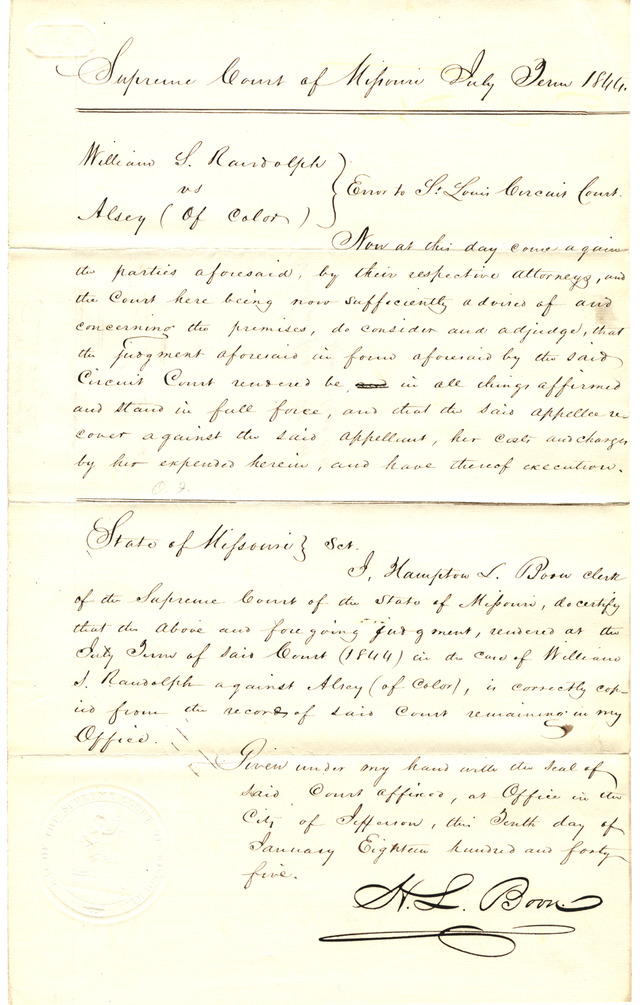 Supreme Court of Missouri July Term 1844.
William S. Randolph
vs
Alsey (Of Color)
} Error to St. Louis Circuit Court.
Now at this day come again
the parties aforesaid, by their respective attorneys, and
the Court here being now sufficiently advised of and
concerning the premises, do consider and adjudge, that
the judgment aforesaid in form aforesaid by the said
Circuit Court rendered be and in all things affirmed
and stand in full force, and that the said appellee re-
cover against the said appellant, her costs and charges
by her expended herein, and have thereof execution.
State of Missouri } Sct.
I, Hampton L. Boon clerk
of the Supreme Court of the State of Missouri, do certify
that the above and foregoing judgment, rendered at the
July Term of said Court (1844) in the case of William
S. Randolph against Alsey (of Color), is correctly cop-
ied from the records of said Court remaining in my
Office.
Given under my hand with the seal of
said Court affixed, at Office in the
City of Jefferson, this Tenth day of
January Eighteen hundred and forty
five.
H. L. Boon.